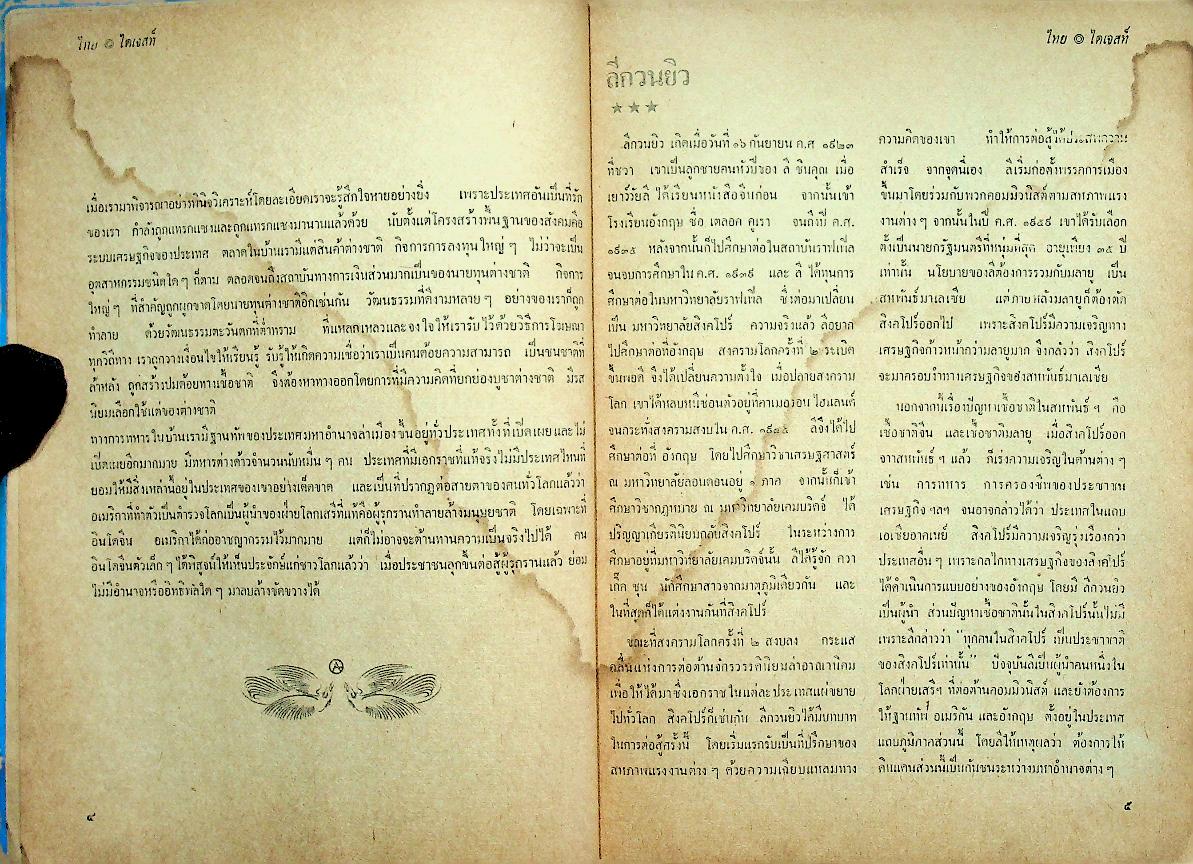 ไทย ๏ ไดเจสท์
เมื่อเรามาพิจารณาอย่างพินิจวิเคราะห์โดยละเอียดเราจะรู้สึกใจหายอย่างยิ่ง เพราะประเทศอันเป็นที่รัก
ของเรา กำลังถูกแทรกแซงและถูกแทรกแซงมานานแล้วด้วย นับตั้งแต่โครงสร้างพื้นฐานของสังคมคือ
ระบบเศรษฐกิจของประเทศ ตลาดในบ้านเรามีแต่สินค้าต่างชาติ กิจการการลงทุนใหญ่ ๆ ไม่ว่าจะเป็น
อุตสาหกรรมชนิดใด ๆ ก็ตาม ตลอดจนถึงสถาบันทางการเงินส่วนมากเป็นของนายทุนต่างชาติ กิจการ
ใหญ่ ๆ ที่สำคัญถูกผูกขาดโดยนายทุนต่างชาติอีกเช่นกัน วัฒนธรรมที่ดีงามหลาย ๆ อย่างของเราก็ถูก
ทำลาย ด้วยวัฒนธรรมตะวันตกที่ต่ำทราม ที่แหลกเหลวและจงใจให้เรารับไว้ด้วยวิธีการโฆษณา
ทุกวิถีทาง เราถูกวางเงื่อนไขให้เรียนรู้ รับรู้ให้เกิดความเชื่อว่าเราเป็นคนด้อยความสามารถ เป็นชนชาติที่
ล้าหลัง ถูกสร้างปมด้อยทางเชื้อชาติ จึงต้องหาทางออกโดยการที่มีความคิดที่ยกย่องบูชาต่างชาติ มีรส
นิยมเลือกใช้แต่ของต่างชาติ
ทางการทหารในบ้านเรามีฐานทัพของประเทศมหาอำนาจล่าเมืองขึ้นอยู่ทั่วประเทศทั้งที่เปิดเผยและไม่
เปิดเผยอีกมากมาย มีทหารต่างด้าวจำนวนนับหมื่น ๆ คน ประเทศที่มีเอกราชที่แท้จริงไม่มีประเทศไหนที่
ยอมให้มีสิ่งเหล่านี้อยู่ในประเทศของเขาอย่างเด็ดขาด และเป็นที่ปรากฏต่อสายตาของคนทั่วโลกแล้วว่า
อเมริกาที่ทำตัวเป็นตำรวจโลกเป็นผู้นำของฝ่ายโลกเสรีที่แท้คือผู้รุกรานทำลายล้างมนุษยชาติ โดยเฉพาะที่
อินโดจีน อเมริกาได้ก่ออาชญากรรมไว้มากมาย แต่ก็ไม่อาจจะต้านทานความเป็นจริงไปได้ คน
อินโดจีนตัวเล็ก ๆ ได้พิสูจน์ให้เห็นประจักษ์แก่ชาวโลกแล้วว่า เมื่อประชาชนลุกขึ้นต่อสู้ผู้รุกรานแล้ว ย่อม
ไม่มีอำนาจหรืออิทธิพลใด ๆ มาลบล้างขัดขวางได้
๔
ไทย ๏ ไดเจสท์
ลีกวนยิว
★★★
ลีกวนยิว เกิดเมื่อวันที่ ๑๖ กันยายน ค.ศ ๑๙๒๓
ที่ชวา เขาเป็นลูกชายคนหัวปีของ ลี ชินคุณ เมื่อ
เยาว์วัยลี ได้เรียนหนังสือจีนก่อน จากนั้นเข้า
โรงเรียนอังกฤษ ชื่อ เตลอก คูเรา จนถึงปี ค.ศ.
๑๙๓๕ หลังจากนั้นก็ไปศึกษาต่อในสถาบันราฟเฟิล
จนจบการศึกษาใน ค.ศ. ๑๙๓๙ และ ลี ได้ทุนการ
ศึกษาต่อในมหาวิทยาลัยราฟเฟิล ซึ่งต่อมาเปลี่ยน
เป็น มหาวิทยาลัยสิงคโปร์ ความจริงแล้ว ลีอยาก
ไปศึกษาต่อที่อังกฤษ สงครามโลกครั้งที่ ๒ ระเบิด
ขึ้นพอดี จึงได้เปลี่ยนความตั้งใจ เมื่อปลายสงคราม
โลก เขาได้หลบหนีซ่อนตัวอยู่ที่คาเมอรอน ไฮแลนด์
จนกระทั่งสงครามสงบใน ค.ศ. ๑๙๔๕ ลีจึงได้ไป
ศึกษาต่อที่ อังกฤษ โดยไปศึกษาวิชาเศรษฐศาสตร์
ณ มหาวิทยาลัยลอนดอนอยู่ ๑ ภาค จากนั้นก็เข้า
ศึกษาวิชากฎหมาย ณ มหาวิทยาลัยเคมบริดจ์ ได้
ปริญญาเกียรตินิยมกลับสิงคโปร์ ในระหว่างการ
ศึกษาอยู่ที่มหาวิทยาลัยเคมบริดจ์นั้น ลีได้รู้จัก ควา
เก็ก ชุน นักศึกษาสาวจากมาตุภูมิเดียวกัน และ
ในที่สุดก็ได้แต่งงานกันที่สิงคโปร์
ขณะที่สงครามโลกครั้งที่ ๒ สงบลง กระแส
คลื่นแห่งการต่อต้านจักรวรรดินิยมล่าอาณานิคม
เพื่อให้ได้มาซึ่งเอกราชในแต่ละประเทศแผ่ขยาย
ไปทั่วโลก สิงคโปร์ก็เช่นกัน ลีกวนยิวได้มีบทบาท
ในการต่อสู้ครั้งนี้ โดยเริ่มแรกรับเป็นที่ปรึกษาของ
สหภาพแรงงานต่าง ๆ ด้วยความเฉียบแหลมทาง
ความคิดของเขา ทำให้การต่อสู้ได้ประสบความ
สำเร็จ จากจุดนี้เอง ลีเริ่มก่อตั้งพรรคการเมือง
ขึ้นมาโดยร่วมกับพวกคอมมิวนิสต์ตามสหภาพแรง
งานต่าง ๆ จากนั้นในปี ค.ศ. ๑๙๕๙ เขาได้รับเลือก
ตั้งเป็นนายกรัฐมนตรีที่หนุ่มที่สุด อายุเพียง ๓๕ ปี
เท่านั้น นโยบายของลีต้องการรวมกับมลายู เป็น
สหพันธ์มาเลเซีย แต่ภายหลังมลายูก็ต้องตัด
สิงคโปร์ออกไป เพราะสิงคโปร์มีความเจริญทาง
เศรษฐกิจก้าวหน้ากว่ามลายูมาก จึงกลัวว่า สิงคโปร์
จะมาครอบงำทางเศรษฐกิจของสหพันธ์มาเลเซีย
นอกจากนี้เรื่องปัญหาเชื้อชาติในสหพันธ์ ฯ คือ
เชื้อชาติจีน และเชื้อชาติมลายู เมื่อสิงคโปร์ออก
จากสหพันธ์ ฯ แล้ว ก็เร่งความเจริญในด้านต่าง ๆ
เช่น การทหาร การครองชีพของประชาชน
เศรษฐกิจ ฯลฯ จนอาจกล่าวได้ว่า ประเทศในแถบ
เอเชียอาคเนย์ สิงคโปร์มีความเจริญรุ่งเรืองกว่า
ประเทศอื่น ๆ เพราะกลไกทางเศรษฐกิจของสิงคโปร์
ได้ดำเนินการแบบอย่างของอังกฤษ โดยมี ลีกวนยิว
เป็นผู้นำ ส่วนปัญหาเชื้อชาตินั้นในสิงคโปร์นั้นไม่มี
เพราะลีกล่าวว่า "ทุกคนในสิงคโปร์ เป็นประชาชาติ
ของสิงคโปร์เท่านั้น" ปัจจุบันลีเป็นผู้นำคนหนึ่งใน
โลกฝ่ายเสรีฯ ที่ต่อต้านคอมมิวนิสต์ และยังต้องการ
ให้ฐานทัพ อเมริกัน และอังกฤษ ตั้งอยู่ในประเทศ
แถบภูมิภาคส่วนนี้ โดยลีให้เหตุผลว่า ต้องการให้
ดินแดนส่วนนี้เป็นกันชนระหว่างมหาอำนาจต่าง ๆ
๕